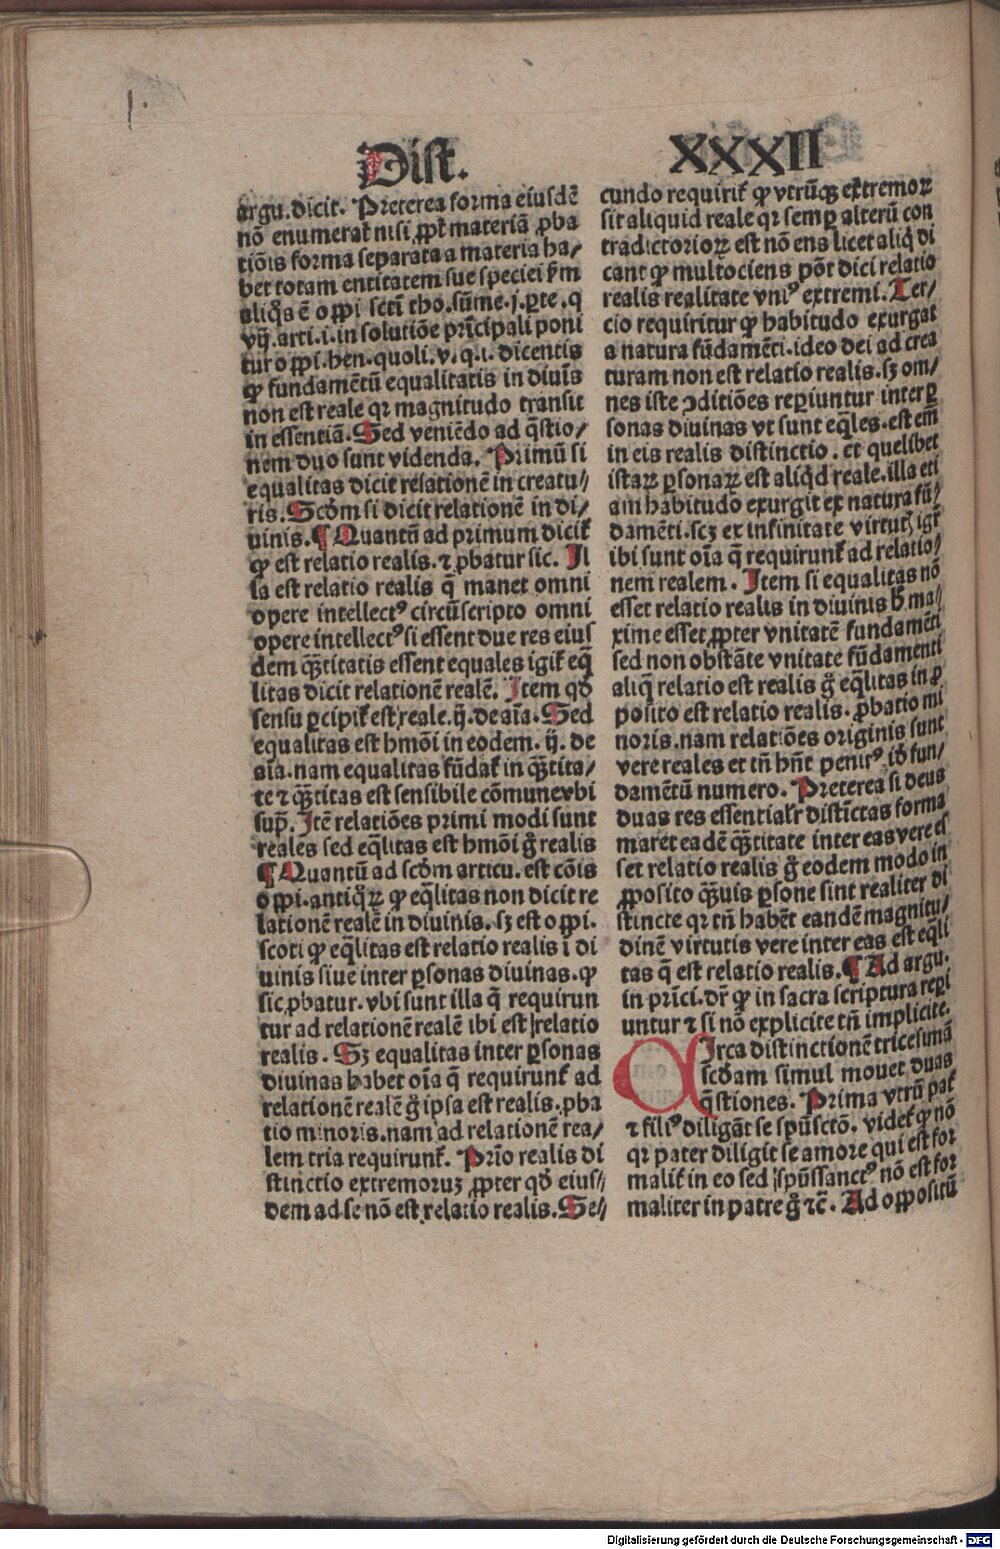 Dist. XXXII
argu.dicit. Preterea forma eiusdē
nō enumerat᷑ nisi ꝓpt᷑ materiā ꝓba
tiōis forma separata a materia ha/
bet totam entitatem sue speciei ẜm
aliq̄s ē oppi scti tho.sūme.j.ꝑte.q
vij.arti.i.in solutiōe prīcipali poni
tur oppi.hen.quoli.v.q.i. dicentis
ꝙ fundamētū equalitatis in diuīs
non est reale qr magnitudo transit
in essentiā.Sed veniēdo ad q̄stio/
nem duo sunt videnda. Primū si
equalitas dicit relationē in creatu//
ris.Scd̄m si dicit relationē in di/
uinis.¶ Quantū ad primum dicit᷑
ꝙ est relatio realis.⁊ ꝓbatur sic. Il
la est relatio realis q̄ manet omni
opere intellectꝰ circūscripto omni
opere intellectꝰ si essent due res eius
dem q̄ꝫtitatis essent equales igit᷑ eq̄
litas dicit relationē realē. Item qd̄
sensu ꝑcipit᷑ est reale.ij.de aīa.Sed
equalitas est hmōi in eodem. ij. de
aīa.nam equalitas fūdat᷑ in q̄ꝫtita/
te ⁊ q̄ꝫtitas est sensibile cōmune vbi
sup̄. Itē relatiōes primi modi sunt
reales sed eq̄litas est hmōi ḡ realis
¶ Quantū ad scd̄m articu. est cōis
oppi.antiq̄ꝝ ꝙ eq̄litas non dicit re
lationē realē in diuinis.sꝫ est oppi.
scoti ꝙ eq̄litas est relatio realis ī di
uinis siue inter ꝑsonas diuinas.ꝙ
sic ꝓbatur.vbi sunt illa q̄ requirun
tur ad relationē realē ibi est relatio
realis. Sꝫ equalitas inter ꝑsonas
diuinas habet oīa q̄ requirunt᷑ ad
relationē realē ḡ ipsa est realis.ꝓba
tio minoris.nam ad relationē rea/
lem tria requirunt᷑. Prīo realis di
stinctio extremoruꝫ ꝓpter qd̄ eius//
dem ad se nō est relatio realis.Se//
cundo requirit᷑ ꝙ vtrūqꝫ extremoꝝ
sit aliquid reale qr semꝑ alterū con
tradictorioꝝ est nō ens licet aliq̄ di
cant ꝙ multociens pōt dici relatio
realis realitate vniꝰ extremi.Ter/
cio requiritur ꝙ habitudo exurgat
a natura fūdamēti.ideo dei ad crea
turam non est relatio realis.sꝫ om/
nes iste ꝯditiōes reꝑiuntur inter ꝑ
sonas diuinas vt sunt eq̄les.est em̄
in eis realis distinctio. et quelibet
istaꝝ ꝑsonaꝝ est aliq̄d reale.illa eti
am habitudo exurgit ex natura fū/
damēti.scꝫ ex infinitate virtut᷑ igr̄
ibi sunt oīa q̄ requirunt᷑ ad relatio/
nem realem. Item si equalitas nō
esset relatio realis in diuinis h̄ ma/
xime esset ꝓpter vnitatē fundamēti
sed non obstāte vnitate fūdamenti
aliq̄ relatio est realis ḡ eq̄litas in ꝓ
posito est relatio realis. ꝓbatio mi
noris.nam relatiōes originis sunt
vere reales et tn̄ hn̄t penitꝰ id̄ fun/
damētū numero. Preterea si deus
duas res essentialr̄ distīctas forma
maret eadē q̄ꝫtitate inter eas vere es
set relatio realis ḡ eodem modo in
ꝓposito q̄ꝫuis ꝑsone sint realiter di
stincte qr tn̄ habēt eandē magnitu/
dinē virtutis vere inter eas est eq̄li
tas q̄ est relatio realis.¶ Ad argu.
in prīci.dr̄ ꝙ in sacra scriptura reꝑi
untur ⁊ si nō explicite tn̄ implicite.
CIrca distinctionē tricesimā
scd̄am simul mouet duas
q̄stiones. Prima vtrū pat᷑
⁊ filiꝰ diligāt se spūsctō. videt᷑ ꝙ nō
qr pater diligit se amore qui est for
malit᷑ in eo sed spūssanctꝰ nō est for
maliter in patre ḡ ⁊c̄. Ad oppositū
Digitalisierung gefördert durch die Deutsche Forschungsgemeinschaft - DFG